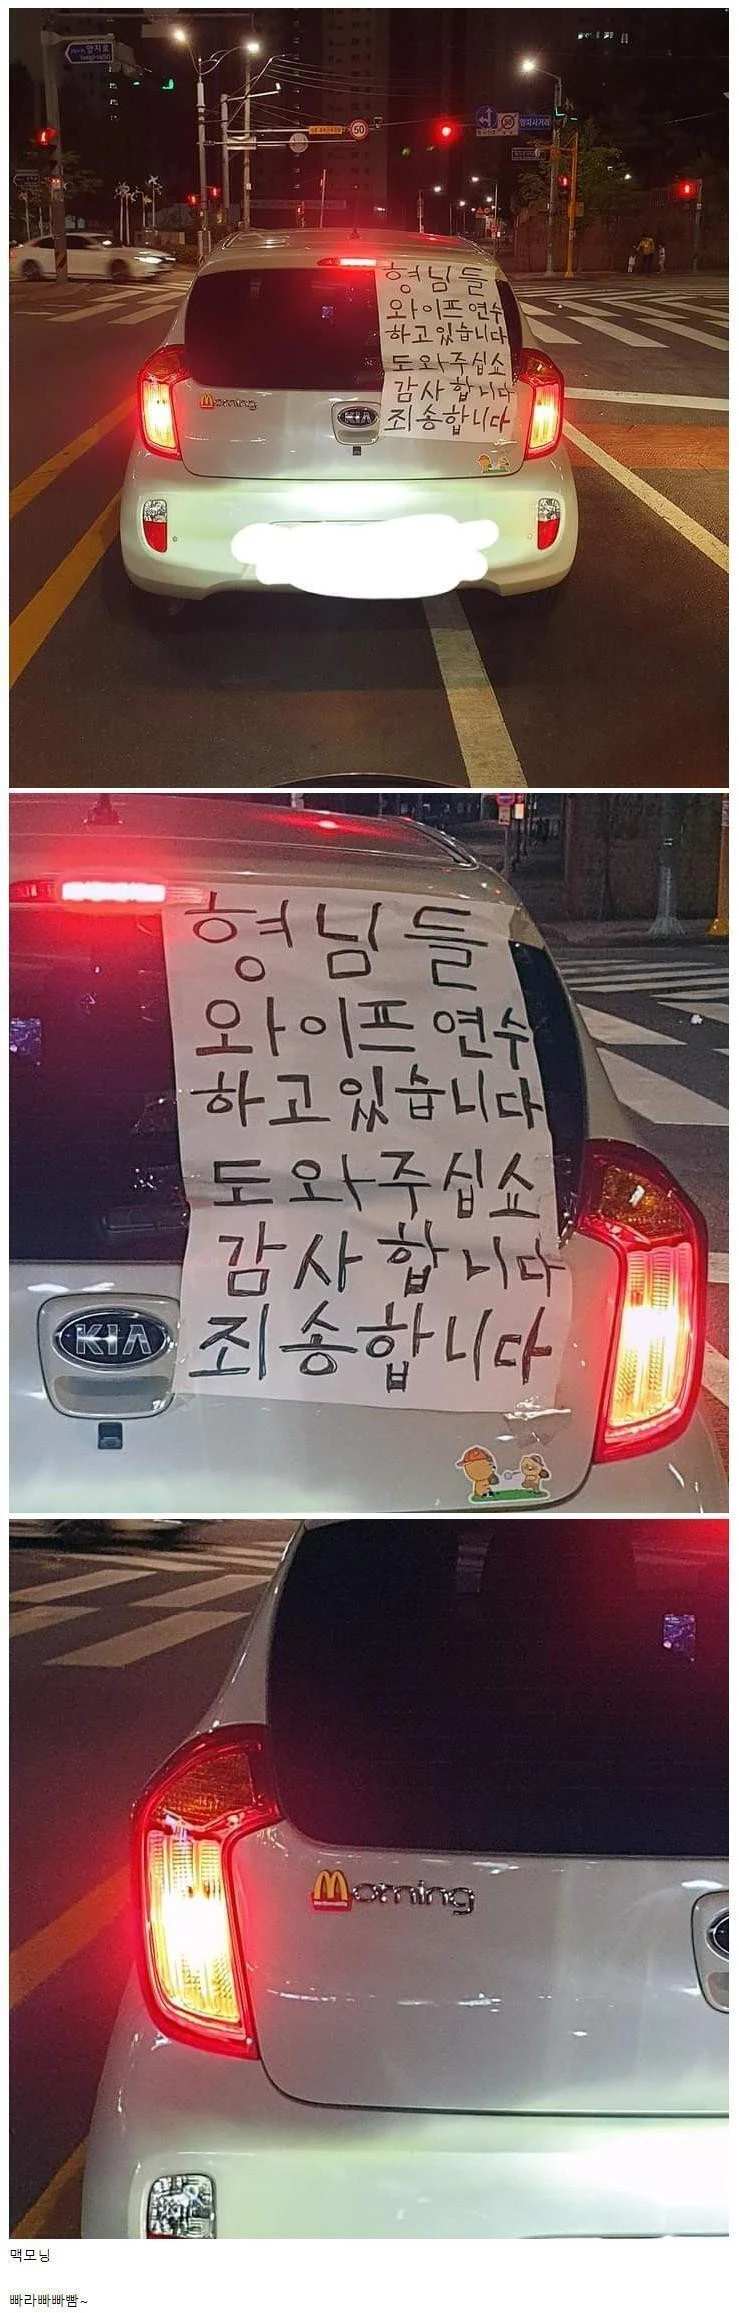 양지로
50
양지사거리
형님들
와이프 연수
하고있습니다
도와주십쇼
감사합니다
죄송합니다
Morning
KIA
형님들
와이프 연수
하고있습니다
도와주십쇼
감사합니다
죄송합니다
KIA
Morning
맥모닝
빠라빠빠빰~